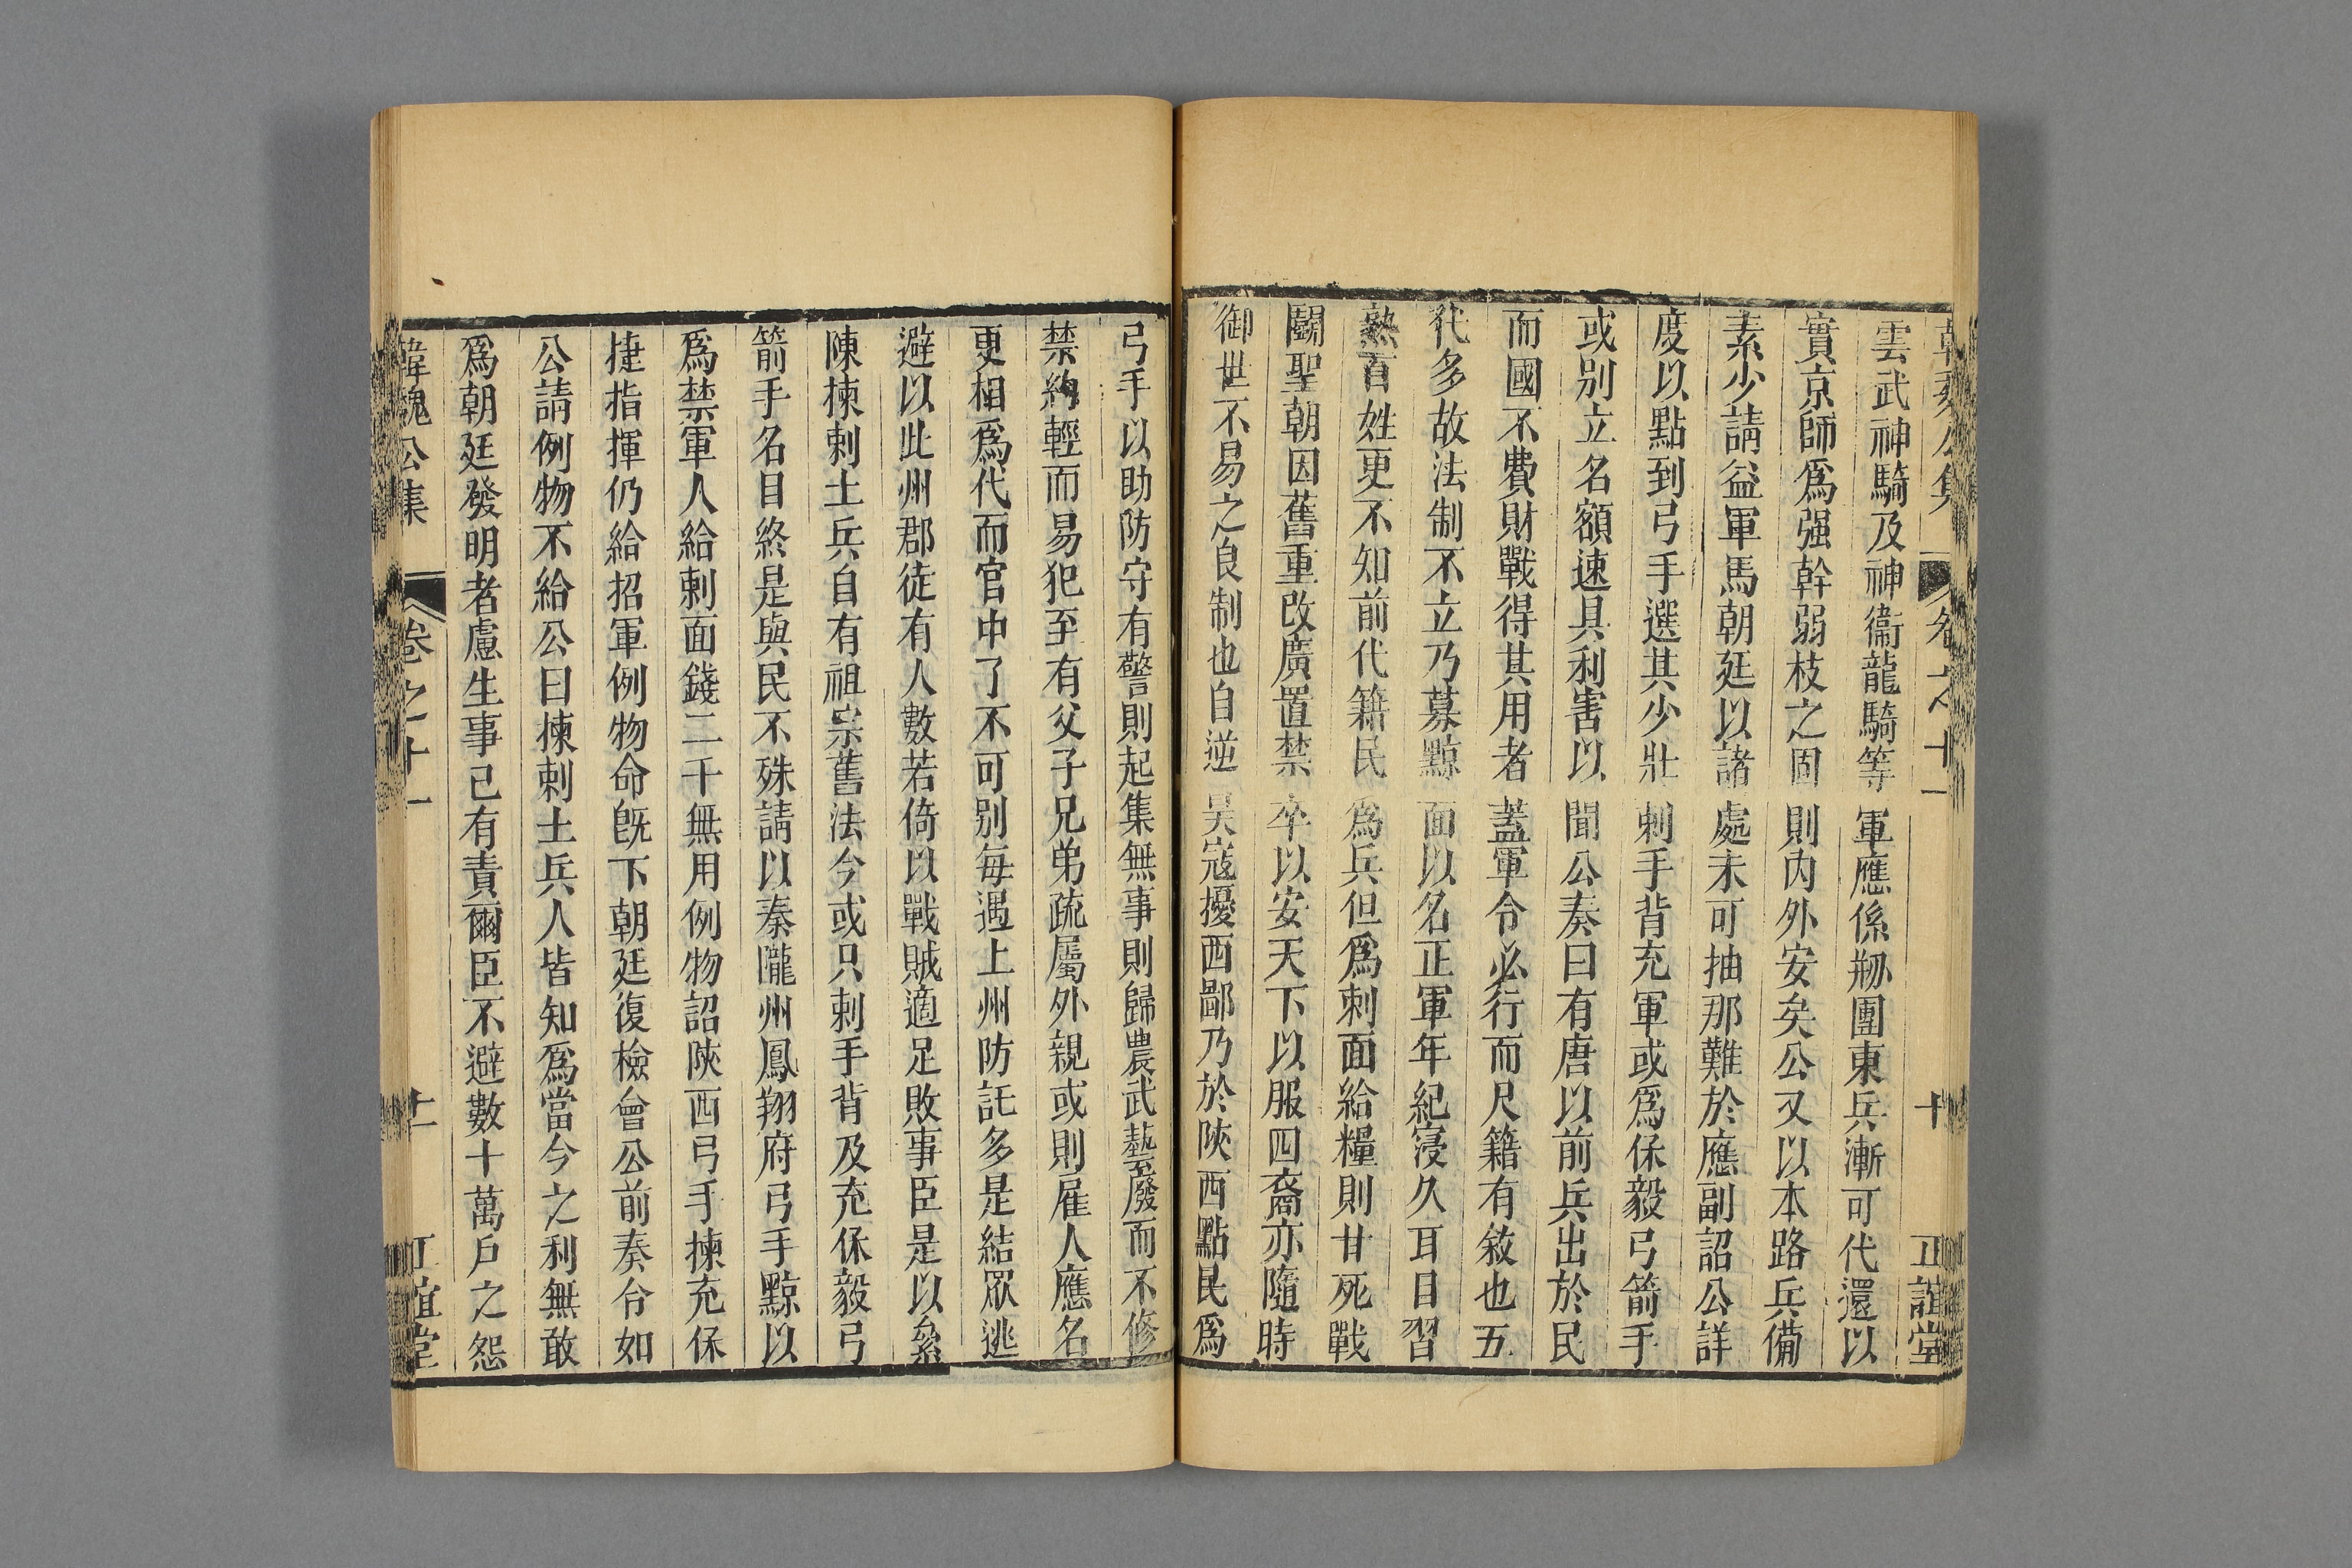 韓魏公集 卷之十一 十 正誼堂
雲武神騎及神衞龍騎等軍應係剏團東兵漸可代還以
實京師爲强幹弱枝之固則内外安矣公又以本路兵備
素少請益軍馬朝廷以諸處未可抽那難於應副詔公詳
度以點到弓手選其少壯刺手背充軍或爲保毅弓箭手
或别立名額速具利害以聞公奏曰有唐以前兵出於民
而國不費財戰得其用者蓋軍令必行而尺籍有敘也五
代多故法制不立乃募黥面以名正軍年紀寖久耳目習
熟百姓更不知前代籍民爲兵但爲刺面給糧則甘死戰
鬭聖朝因舊重改廣置禁卒以安天下以服四裔亦隨時
御世不易之良制也自逆昊寇擾西鄙乃於陝西點民爲
弓手以助防守有警則起集無事則歸農武藝廢而不修
禁約輕而易犯至有父子兄弟疏屬外親或則雇人應名
更相爲代而官中了不可别每遇上州防託多是結眾逃
避以此州郡徒有人數若倚以戰賊適足敗事臣是以絫
陳揀刺土兵自有祖宗舊法今或只刺手背及充保毅弓
箭手名目終是與民不殊請以秦隴州鳳翔府弓手黥以
爲禁軍人給刺面錢二千無用例物詔陝西弓手揀充保
捷指揮仍給招軍例物命旣下朝廷復檢會公前奏令如
公請例物不給公曰揀刺土兵人皆知爲當今之利無敢
爲朝廷發明者慮生事已有責爾臣不避數十萬戶之怨
韓魏公集 卷之十一 十一 正誼堂